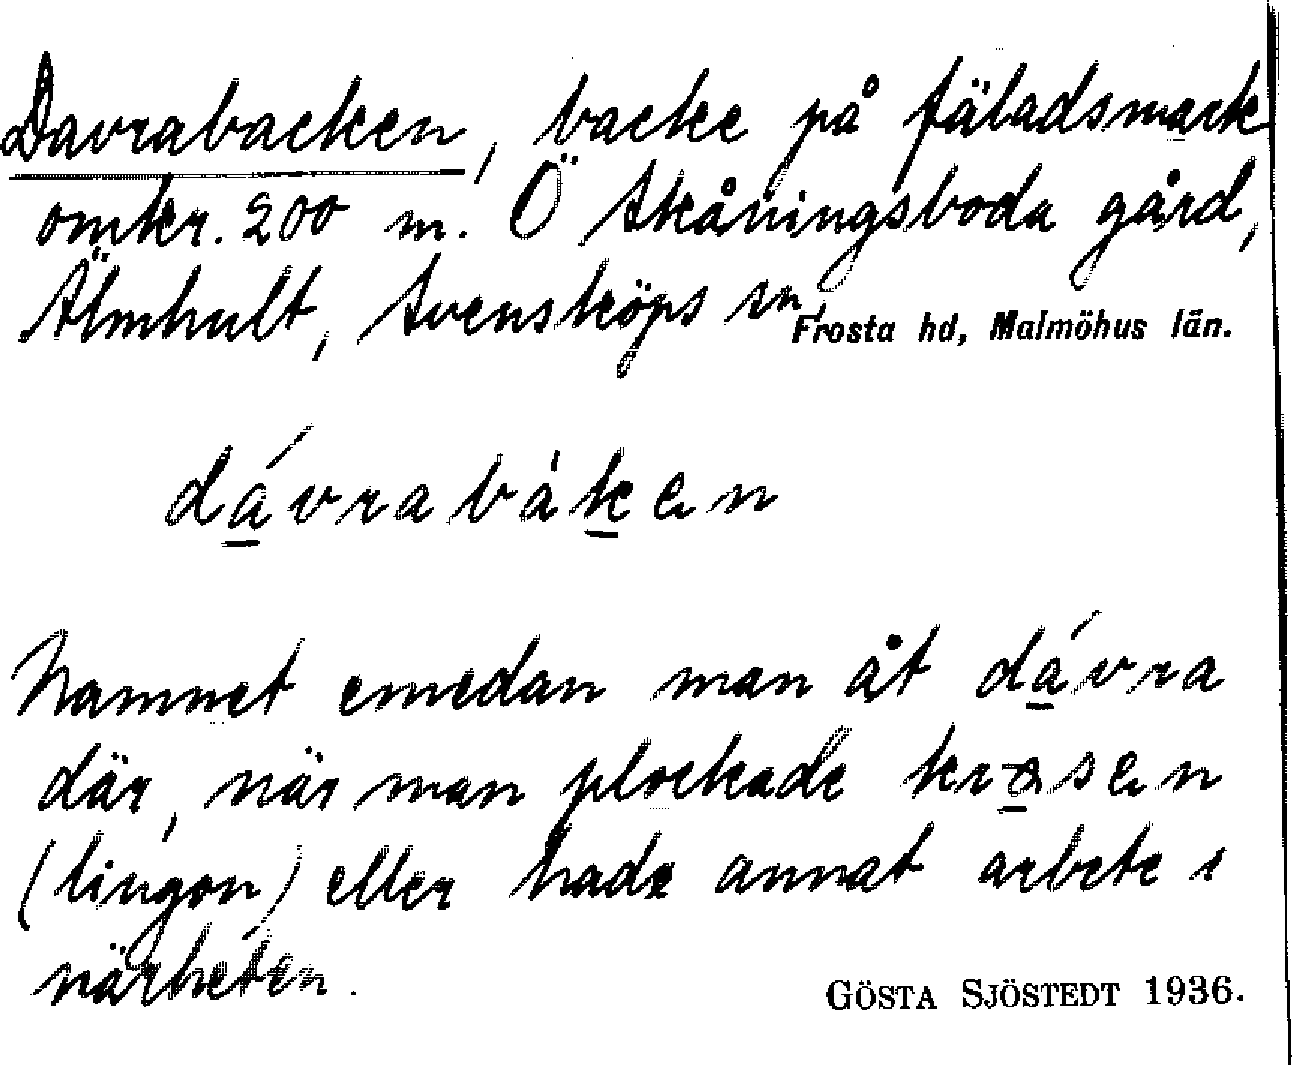 Davrabacken, backe på fäladsmark
omkr. 200 m. Ö Skåningsboda gård,
Älmhult, Svensköps sn,
Frosta hd, Malmöhus län.
dávrabàken
Namnet emedan man åt dávra
där, när man plockade krɵsen
(lingon) eller hade annat arbete i
närheten.
GÖSTA SJÖSTEDT 1936.